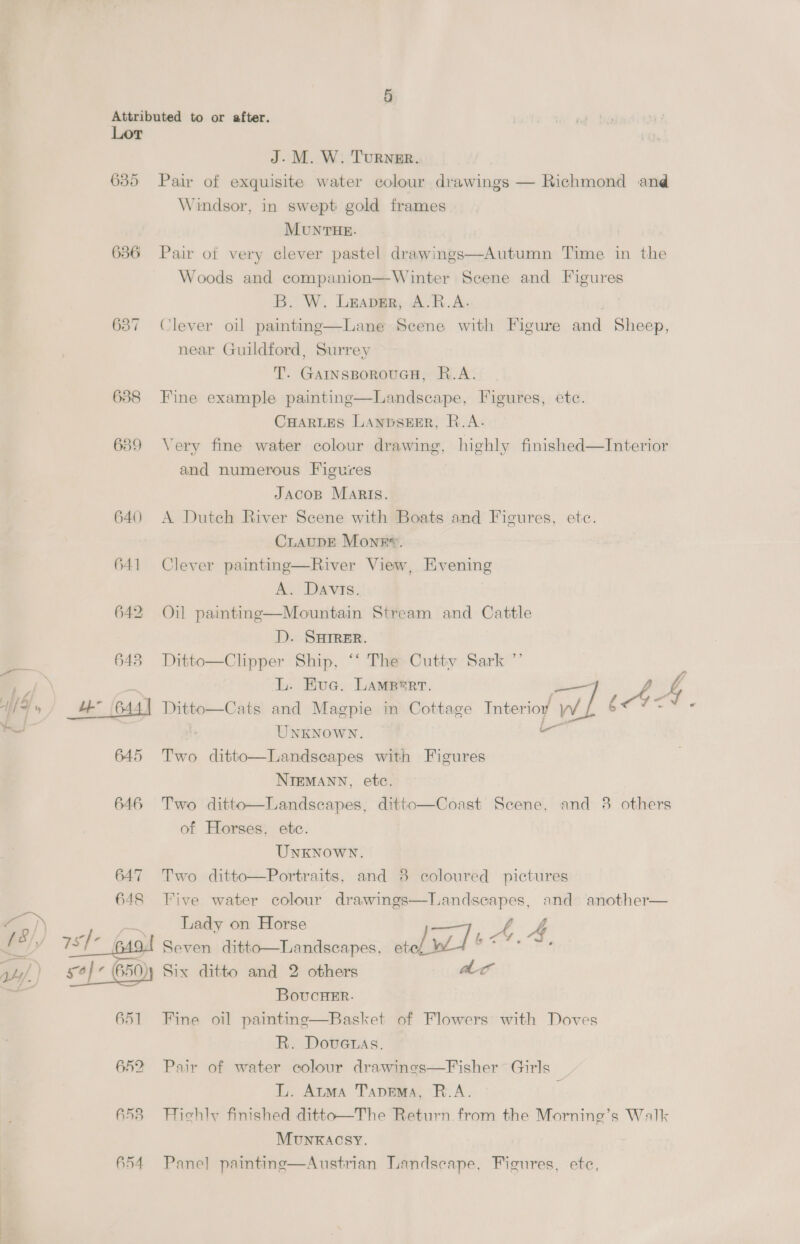 5
Attributed to or after.
Lot
J. M. W. Turner.
635 Pair of exquisite water colour drawings — Richmond and
Windsor, in swept gold frames
Munthe.
636 Pair of very clever pastel drawings—Autumn Time in the
Woods and companion—Winter Scene and Figures
B. W. Leader, A.R.A.
637 Clever oil painting—Lane Scene with Figure and Sheep,
near Guildford, Surrey
T. Gainsborough, R.A.
638 Fine example painting—Landscape, Figures, etc.
Charles Landseer, R.A.
639 Very fine water colour drawing, highly finished—Interior
and numerous Figures
Jacob Maris.
640 A Dutch River Scene with Boats and Figures, etc.
Claude Monet.
641 Clever painting—River View, Evening
A. Davis.
642 Oil painting—Mountain Stream and Cattle
D. Shirer.
643 Ditto—Clipper Ship, “ The Cutty Sark ”
L. Eug. Lambert.
644 Ditto—Cats and Magpie in Cottage Interior
Unknown.
645 Two ditto—Landscapes with Figures
Niemann, etc.
646 Two ditto—Landscapes, ditto—Coast Scene, and 3 others
of Horses, etc.
Unknown.
647 Two ditto—Portraits, and 3 coloured pictures
648 Five water colour drawings—Landscapes, and another—
Lady on Horse
75/- 649 Seven ditto—Landscapes, etc.
50/- 650 Six ditto and 2 others
Boucher.
651 Fine oil painting—Basket of Flowers with Doves
R. Douglas.
652 Pair of water colour drawings—Fisher Girls
L. Alma Tadema, R.A.
653 Highly finished ditto—The Return from the Morning’s Walk
Munkacsy.
654 Panel painting—Austrian Landscape, Figures, etc,